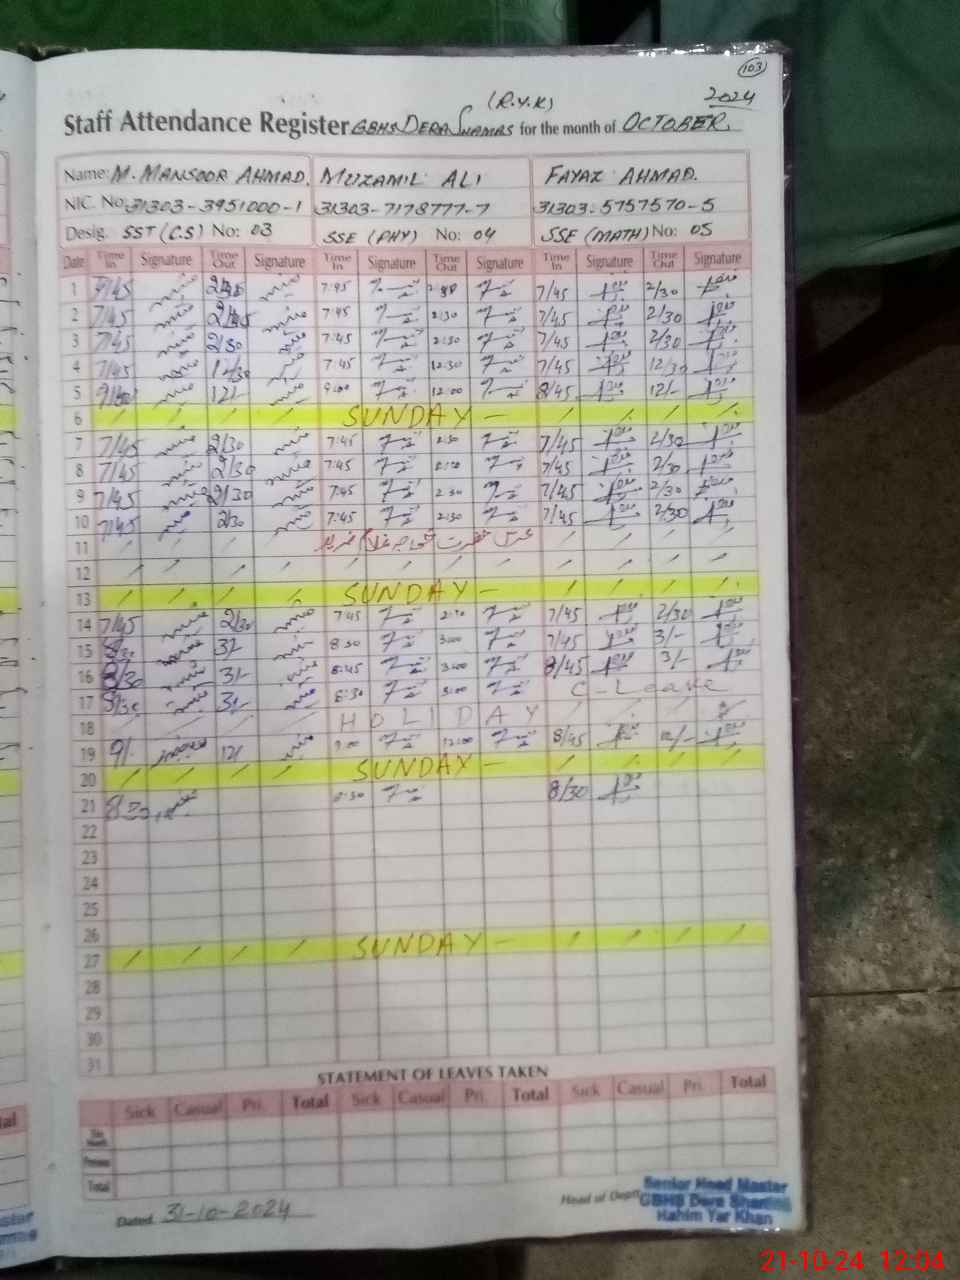 103
(R.Y.K) 2024
Staff Attendance Register GBHS DERA SHAMAS for the month of OCTOBER.
Name: M. MANSOOR AHMAD. MUZAMIL ALI FAYAZ AHMAD.
NIC. No. 31303-3951000-1 31303-7178777-7 31303-5757570-5
Desig. SST (C.S) No: 03 SSE (PHY) No: 04 SSE (MATH) No: 05
Date Time In Signature Time Out Signature Time In Signature Time Out Signature Time In Signature Time Out Signature
1 7/45 7:45 7/45 2/30
2 7/45 7:45 2:30 7/45 2/30
3 7/45 2/30 7:45 2:30 7/45 2/30
4 7/45 12/30 7:45 12:30 7/45 12/30
5 12/- 9:00 12:00 8/45 12/-
6 SUNDAY –
7 7/45 2/30 7:45 2:30 7/45 2/30
8 7/45 2/30 7:45 7/45 2/30
9 7/45 2/30 7:45 2:30 7/45 2/30
10 7/45 2/30 7:45 2:30 7/45 2/30
11 عرس حضرت خواجہ غلام فرید
12
13 SUNDAY –
14 7/45 2/30 7:45 7/45 2/30
15 8/30 3/- 8:30 3:00 7/45 3/-
16 8/30 3/- 8:45 3:00 8/45 3/-
17 8/30 3/- 8:30 3:00 C-Leave
18 HOLIDAY
19 9/- 12/- 9:00 12:00 8/45 12/-
20 SUNDAY –
21 8:30 8:30 8/30
22
23
24
25
26
27 SUNDAY –
28
29
30
31
STATEMENT OF LEAVES TAKEN
Sick Casual Pri. Total Sick Casual Pri. Total Sick Casual Pri. Total
This Month
Previous
Total
Dated 31-10-2024
Head of Deptt.
Senior Head Master
GBHS Dera Shamas
Rahim Yar Khan
21-10-24 12:04